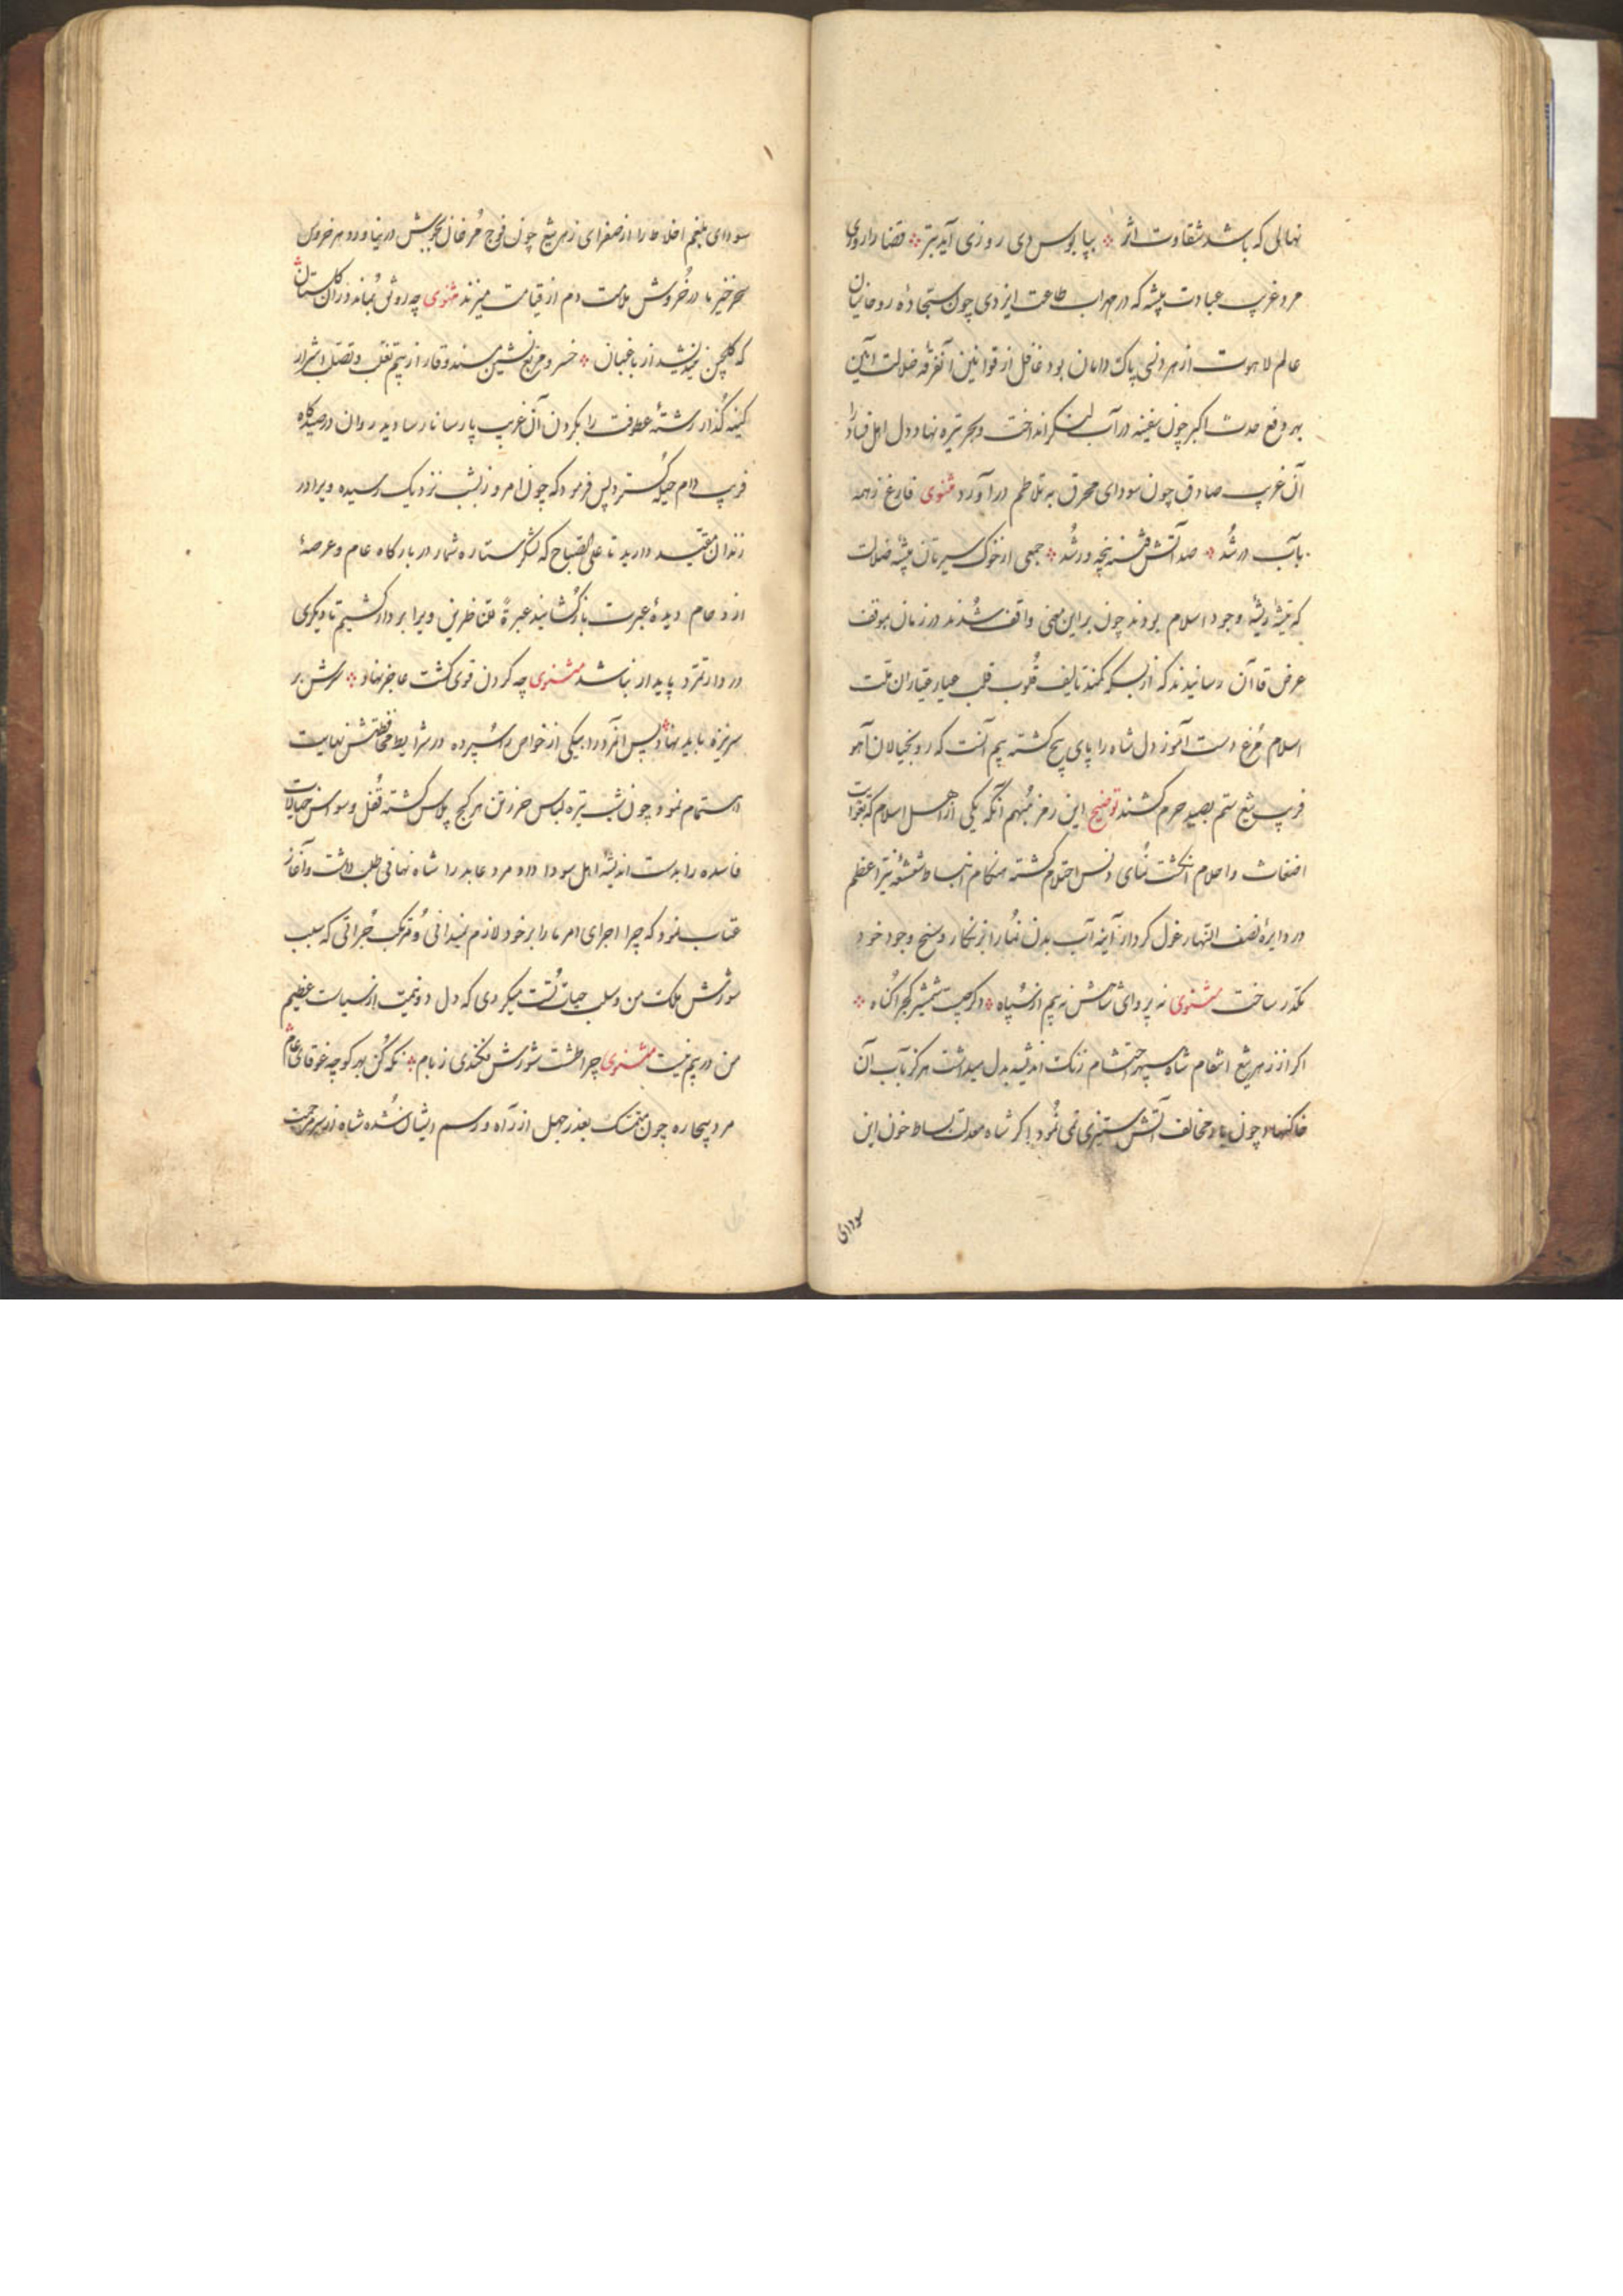 نهالی که باشد شقاوت اثر ؞ بپابوس وی روزی آید تبر ؞ قضا را روزی
مرد غریب عبادت پیشه که در محراب طاعت ایزدی چون سجّاده روحانیان
عالم لاهوت از هر دنس پاک دامان بود غافل از قوانین آنفرقه ضلالت آیین
بهر رفع حدث اکبر چون سفینه در آب لنگر انداخت و بحر تیره نهاد دل اهل فساد را
آن غریب صادق چون سودای محرق به تلاطم درآورد مثنوی فارغ ز همه
بآب در شُد ؞ صد آتش فتنه پنجه ور شُد ؞ جمعی از خوک سیرتان بیشه ضلالت
که تیشه ریشهٔ وجود اسلام بودند چون بر این معنی واقف شُدند در زمان بموقف
عرض قاآن رسانیدند که از بسکه کمند تالیف قُلوب قلب عیار عیّاران ملت
اسلام مُرغ دست آموز دل شاه را پای پیچ گشته بیم آنست که روبه خیالان آهو
فریب تیغ ستم بصید حرم کشند توضیح این رمز مُبهم آنکه یکی از اهل اسلام که بقوات
اضغاث و احلام انگشت نُمای دنس احتلام گشته هنگام انبساط شعشعهٔ نیّر اعظم
در دایرهٔ نصف النّهار غول کردار آینه آب بدن نُما را از زنگار وسخ وجود خود
مکدّر ساخت مثنوی نه پروای شاهش نه بیم از سُپاه ؞ دگر چیست شمشیر کج را گُناه ؞
اکر از زهر تیغ انتقام شاه سپهر احتشام زنگ اندیشه بدل میداشت هرگز بآب آن
خاکنهاد چون باد مخالف آتش ستیزی نمی نُمود اکر شاه معدلت بساط خون این
سودای
سودای بلغم اخلاط را از صفرای زهر تیغ چون فوج مُرغان بجوش در نیاورد هر خروس
سحر خیز ما در خُروش ملامت دم از قیامت میزند مثنوی چه رونق بُماند در آن گلستان ؞
که گلچین نیندیشد از باغبان ؞ خسرو مربع نشین مسند وقار از بیم تغلّب و تصلّب اشرار
کینه گُذار رشتهٔ عطوفت را بگردن آن غریب پارسا نارسا دید روان در صیدگاه
فریب دام حیله گُسترد پس فرمود که چون امروز بشب نزدیک رسیده ویرا در
زندان مقیّد دارید تا علی الصّباح که لشکر ستاره شمار در بارگاه عام و عرصهٔ
ازدحام دیدهٔ عبرت باز گُشایند عبرةً للنّاظرین ویرا بر دار کشیم تا دیگری
در دار تمرّد پایدار نباشد مثنوی چه گردن قوی گشت عاجز نهاد ؞ سرش بر
سر نیزه باید نهاد ؞ پس آنمرد را بیکی از خواص اسُپرده در شرایط محافظتش نهایت
اهتمام نمود چون شب تیره لباس حزوتن هر کج پلاس گشته قُفل وسواس خیالات
فاسده را بدست اندیشهٔ اهل سودا داد مرد عابد را شاه نهانی طلب داشت و آغاز
عتاب نمُود که چرا اجرای امر ما را بر خود لازم نمیدانی و مُرتکب جُراتی که سبب
شورش ملک من و سلب حیات تُست میگردی که دل دو نیمت از سیاست عظیم
من در بیم نیست مثنوی چرا طشت شورش فکندی ز بام ؞ نگه کُن بهر کوچه غوغای عام ؞
مرد بیچاره چون متمسّک بعذر جهل از راه و رسم ایشان شُده شاه از سر مرحمت